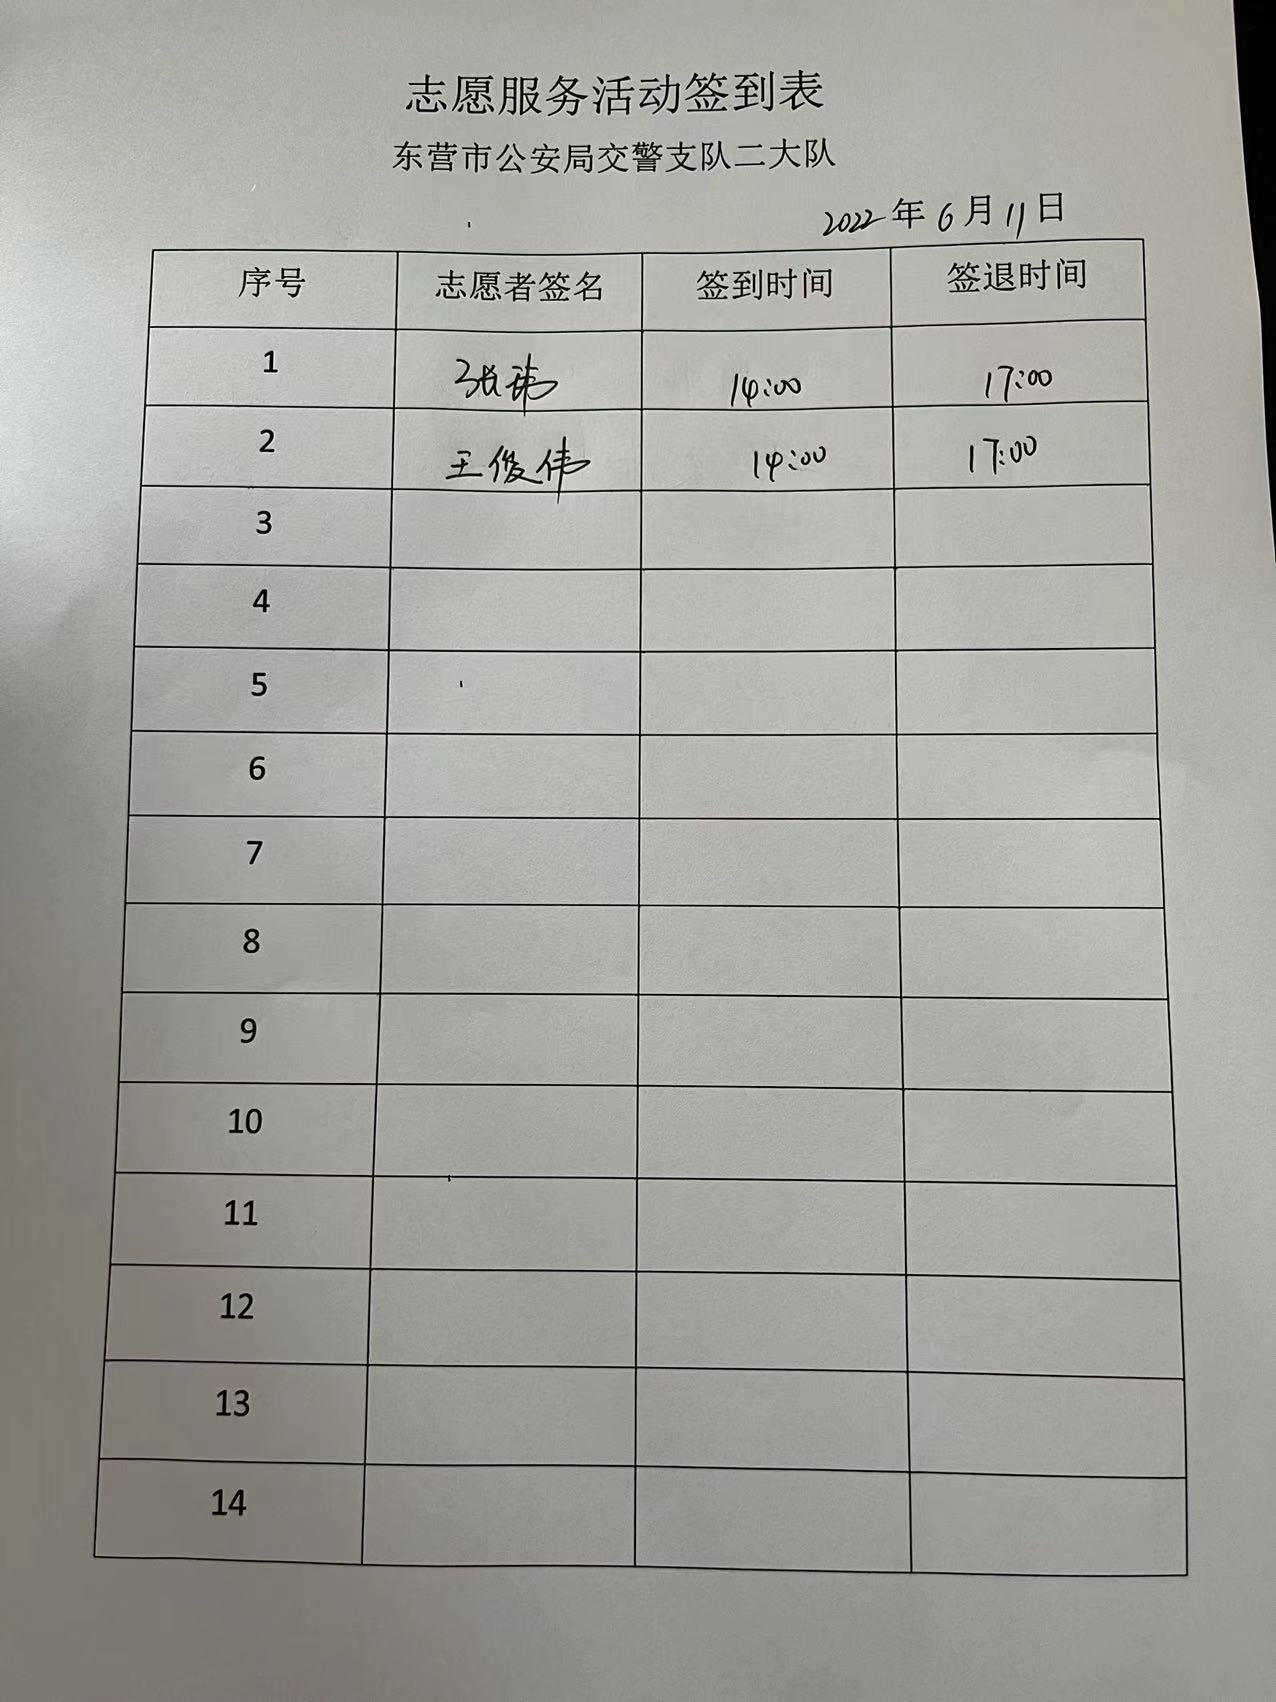 志愿服务活动签到表
东营市公安局交警支队二大队
2022年6月11日
序号 志愿者签名 签到时间 签退时间
1 张玮 14:00 17:00
2 王俊伟 14:00 17:00
3
4
5
6
7
8
9
10
11
12
13
14